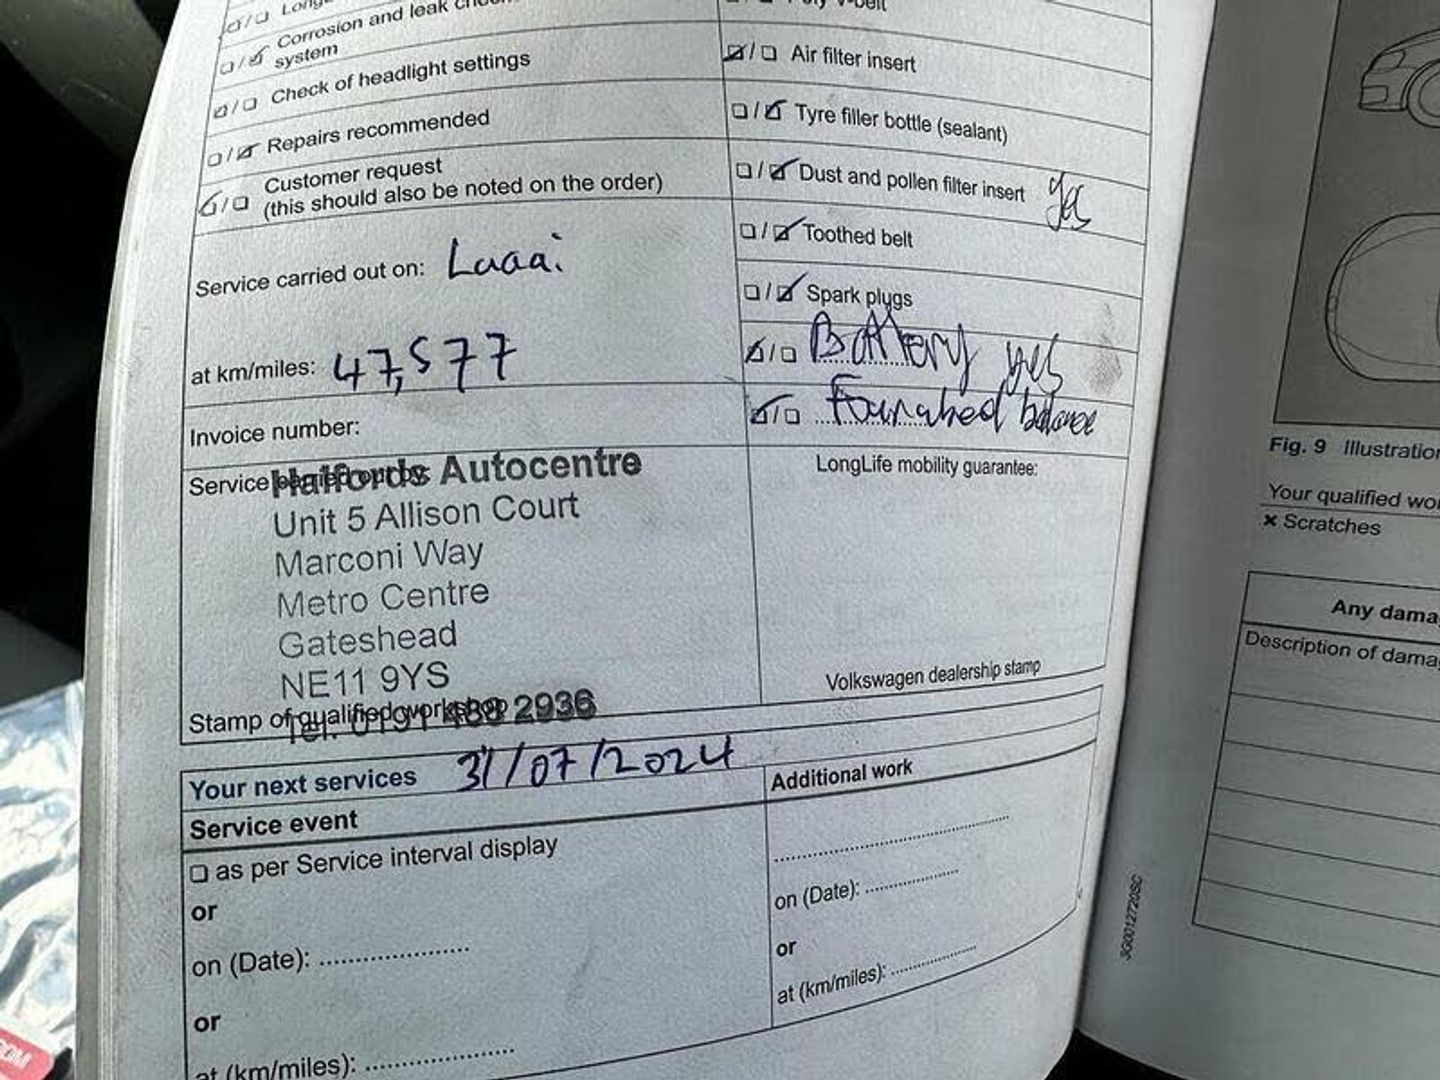 Corrosion and leak check
system
Check of headlight settings
Repairs recommended
Customer request
(this should also be noted on the order)
Service carried out on: Luaai
at km/miles: 47,577
Invoice number:
Service
Halfords Autocentre
Unit 5 Allison Court
Marconi Way
Metro Centre
Gateshead
NE11 9YS
Tel: 0191 488 2936
Stamp of qualified workshop
Poly V-belt
Air filter insert
Tyre filler bottle (sealant)
Dust and pollen filter insert yes
Toothed belt
Spark plugs
Battery yes
balance
LongLife mobility guarantee:
Volkswagen dealership stamp
Your next services 31/07/2024
Service event
as per Service interval display
or
on (Date):
or
at (km/miles):
Additional work
on (Date):
or
at (km/miles):
3G0012720SC
Fig. 9 Illustration
Your qualified
× Scratches
Any
Description of